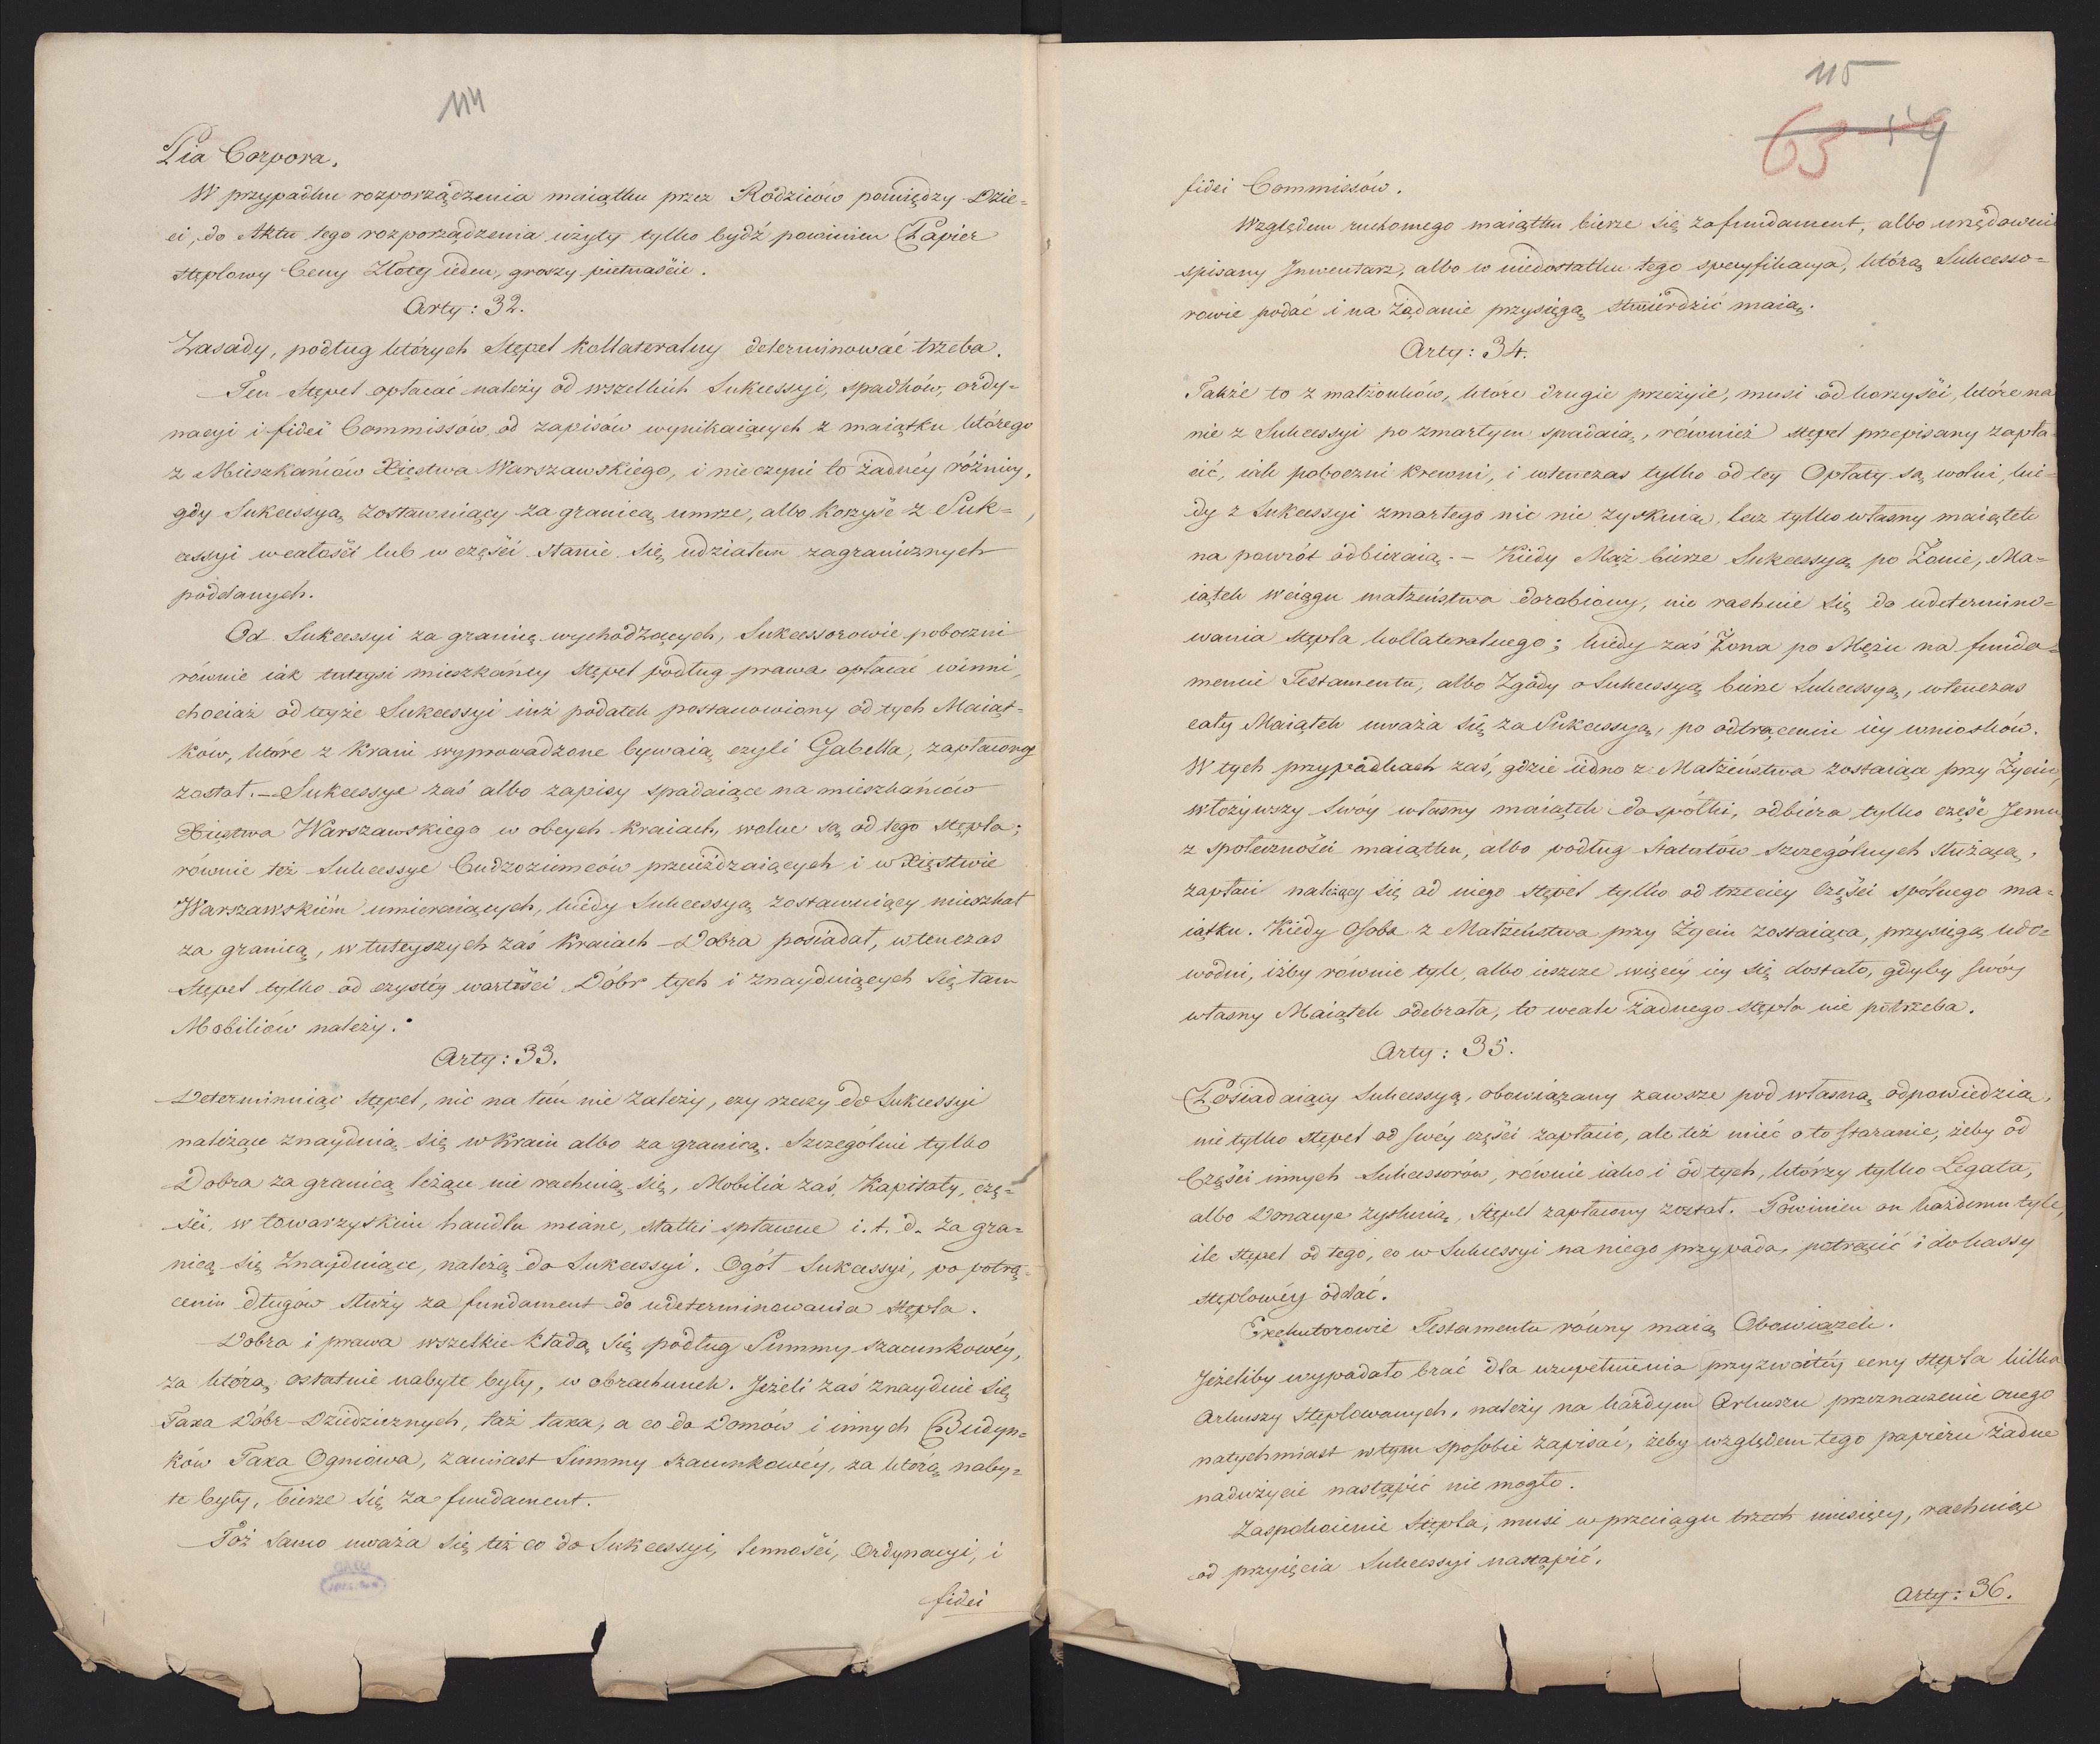 114
Pia Corpora.
W przypadku rozporządzenia maiątku przez Rodziców pomiędzy Dzie=
ci, do Aktu tego rozporządzenia użyty tylko bydź powinien Papier
stęplowy Ceny Złoty ieden, groszy pietnaście.
Arty: 32.
Zasady, podług których Stępel kollateralny determinować trzeba.
Ten Stępel opłacać należy od wszelkich Sukcessyi, spadków, ordy=
nacyi i fidei Commissów, od zapisów wynikaiących z maiątku którego
z Mieszkańców Xięstwa Warszawskiego, i nie czyni to żadnéy różnicy,
gdy Sukcessyą zostawuiący za granicą umrze, albo korzyść z Suk=
cessyi wcałości lub w części stanie się udziałem zagranicznych
poddanych.
Od Sukcessyi za granicę wychodzących, Sukcessorowie poboczni
równie iak tuteysi mieszkańcy stępel podług prawa opłacać winni,
chociaż od teyże Sukcessyi iuż podatek postanowiony od tych Maiąt=
ków, które z kraiu wyprowadzone bywaią, czyli Gabella, zapłacony
został. — Sukcessye zaś albo zapisy spadaiące na mieszkańców
Xięstwa Warszawskiego w obcych kraiach, wolne są od tego stępla;
równie też Sukcessye Cudzoziemców przeieżdzaiących i w Xięstwie
Warszawskiém umieraiących, kiedy Sukcessyą zostawuiący mieszkał
za granicą, w tuteyszych zaś kraiach Dobra posiadał, wtenczas
Stępel tylko od czystéy wartości Dóbr tych i znayduiących się tam
Mobiliów należy.
Arty: 33.
Determinuiąc Stępel, nic na tém nie zależy, czy rzeczy do Sukcessyi
należące znayduią się w kraiu albo za granicą. Szczególnie tylko
Dobra za granicą leżące nie rachuią się, Mobilia zaś, Kapitały, czę=
ści, w towarzyskim handlu miane, statki spławne i. t. d. za gra=
nicą się znayduiące, należą do Sukcessyi. Ogół Sukcessyi, po potrą=
ceniu długów służy za fundament do udeterminowania stępla.
Dobra i prawa wszelkie kładą się podług Summy szacunkowéy,
za którą ostatnie nabyte były, w obrachunek. Jeżeli zaś znayduie się
Taxa Dóbr Dziedzicznych, taż taxa, a co do Domów i innych Budyn=
ków Taxa Ogniowa, zamiast Summy szacunkowéy, za którą naby=
te były, bierze się za fundament.
Toż samo uważa się też co do Sukcessyi, lenności, Ordynacyi, i
fidei
115
63 59
fidei Commissów.
Względem ruchomego maiątku bierze się za fundament, albo urzędownie
spisany Jnwentarz, albo w niedostatku tego specyfikacya, którą Sukcesso=
rowie podać i na żądanie przysięgą stwierdzić maią.
Arty: 34.
Także to z małżonków, które drugie przeżyie, musi od korzyści, które na
nie z Sukcessyi po zmarłym spadaią, również stępel przepisany zapła=
cić, iak poboczni krewni, i wtenczas tylko od tey Opłaty są wolni, kie=
dy z Sukcessyi zmarłego nic nie zyskuią, lecz tylko własny maiątek
na powrót odbieraią. — Kiedy Mąż bierze Sukcessyą po Żonie, Ma=
iątek w ciągu małżeństwa dorobiony, nie rachuie się do udetermino=
wania stępla kollateralnego; kiedy zaś Żona po Mężu na funda=
mencie Testamentu, albo Zgody o Sukcessyą bierze Sukcessyą, wtenczas
cały Maiątek uważa się za Sukcessyą, po odtrąceniu iey wniosków.
W tych przypadkach zaś, gdzie iedno z Małżeństwa zostaiąc przy Życiu,
włożywszy swóy własny maiątek do spółki, odbiera tylko część Jemu
z społeczności maiątku, albo podług Statutów szczególnych służącą,
zapłaci należący się od niego stępel tylko od trzeciey Części spólnego ma=
iątku. Kiedy Osoba z Małżeństwa przy Życiu zostaiąca, przysięgą udo=
wodni, iżby równie tyle, albo ieszcze więcéy iey się dostało, gdyby swóy
własny Maiątek odebrała, to wcale żadnego stępla nie potrzeba.
Arty: 35.
Posiadaiący Sukcessyą, obowiązany zawsze pod własną odpowiedzią,
nie tylko stępel od swéy części zapłacić, ale też mieć o to staranie, żeby od
Części innych Sukcessorów, równie iako i od tych, którzy tylko Legata,
albo Donacye zyskuią, Stępel zapłacony został. Powinien on każdemu tyle,
ile stępel od tego, co w Sukcessyi na niego przypada, potrącić i do kassy
stęplowéy oddać.
Exekutorowie Testamentu równy maią Obowiązek.
Jeżeliby wypadało brać dla uzupełnienia przyzwoitéy ceny stępla kilka
Arkuszy Stęplowanych, należy na każdym Arkuszu przeznaczenie onego
natychmiast w tym sposobie zapisać, żeby względem tego papieru żadne
nadużycie nastąpić nie mogło.
Zaspokoienie Stępla, musi w przeciągu trzech miesięcy, rachuiąc
od przyięcia Sukcessyi nastąpić.
Arty: 36.